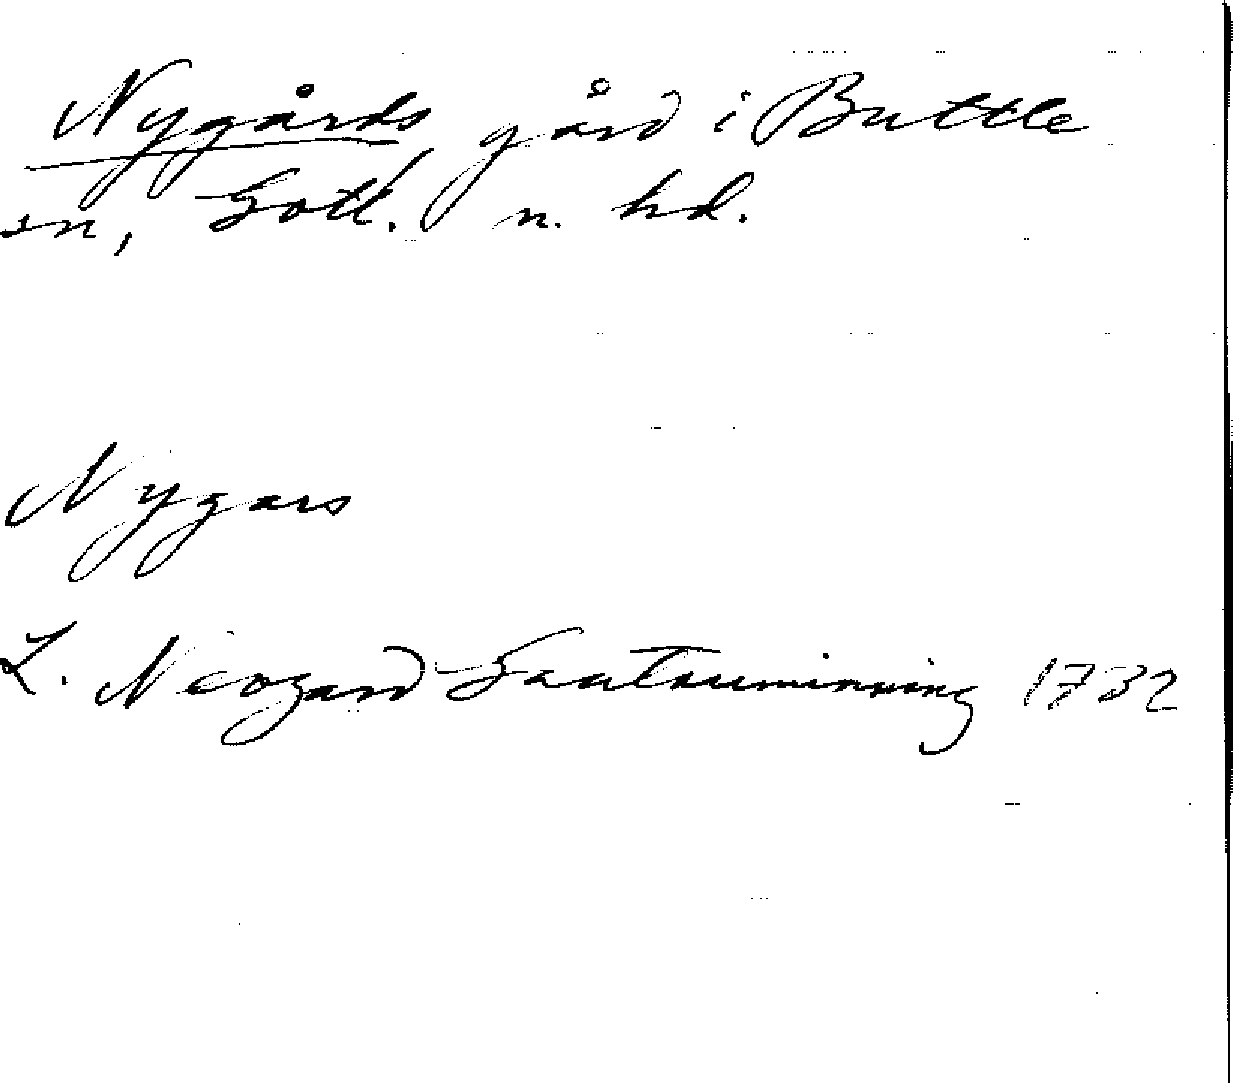 Nygårds, gård i Buttle
sn, Gotl. n. hd.
Nygars
L. Neogard Gautauminning 1732